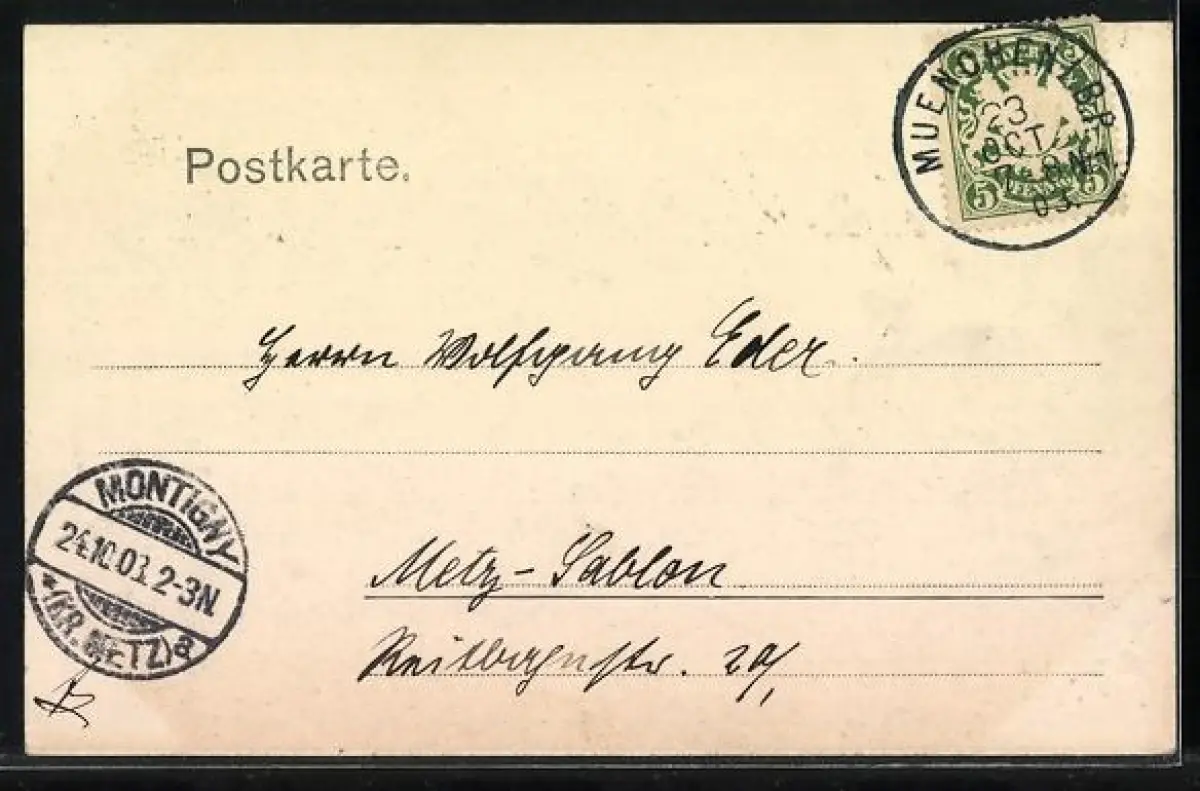 Postkarte.
MUENCHEN 2 B.P.
23
OCT.
7-8 N
03.
5 5
Herrn Wolfgang Eder.
Metz-Sablon
Reitbahnstr. 20/,
MONTIGNY
24.10.03. 2-3N.
*(KR. METZ)a